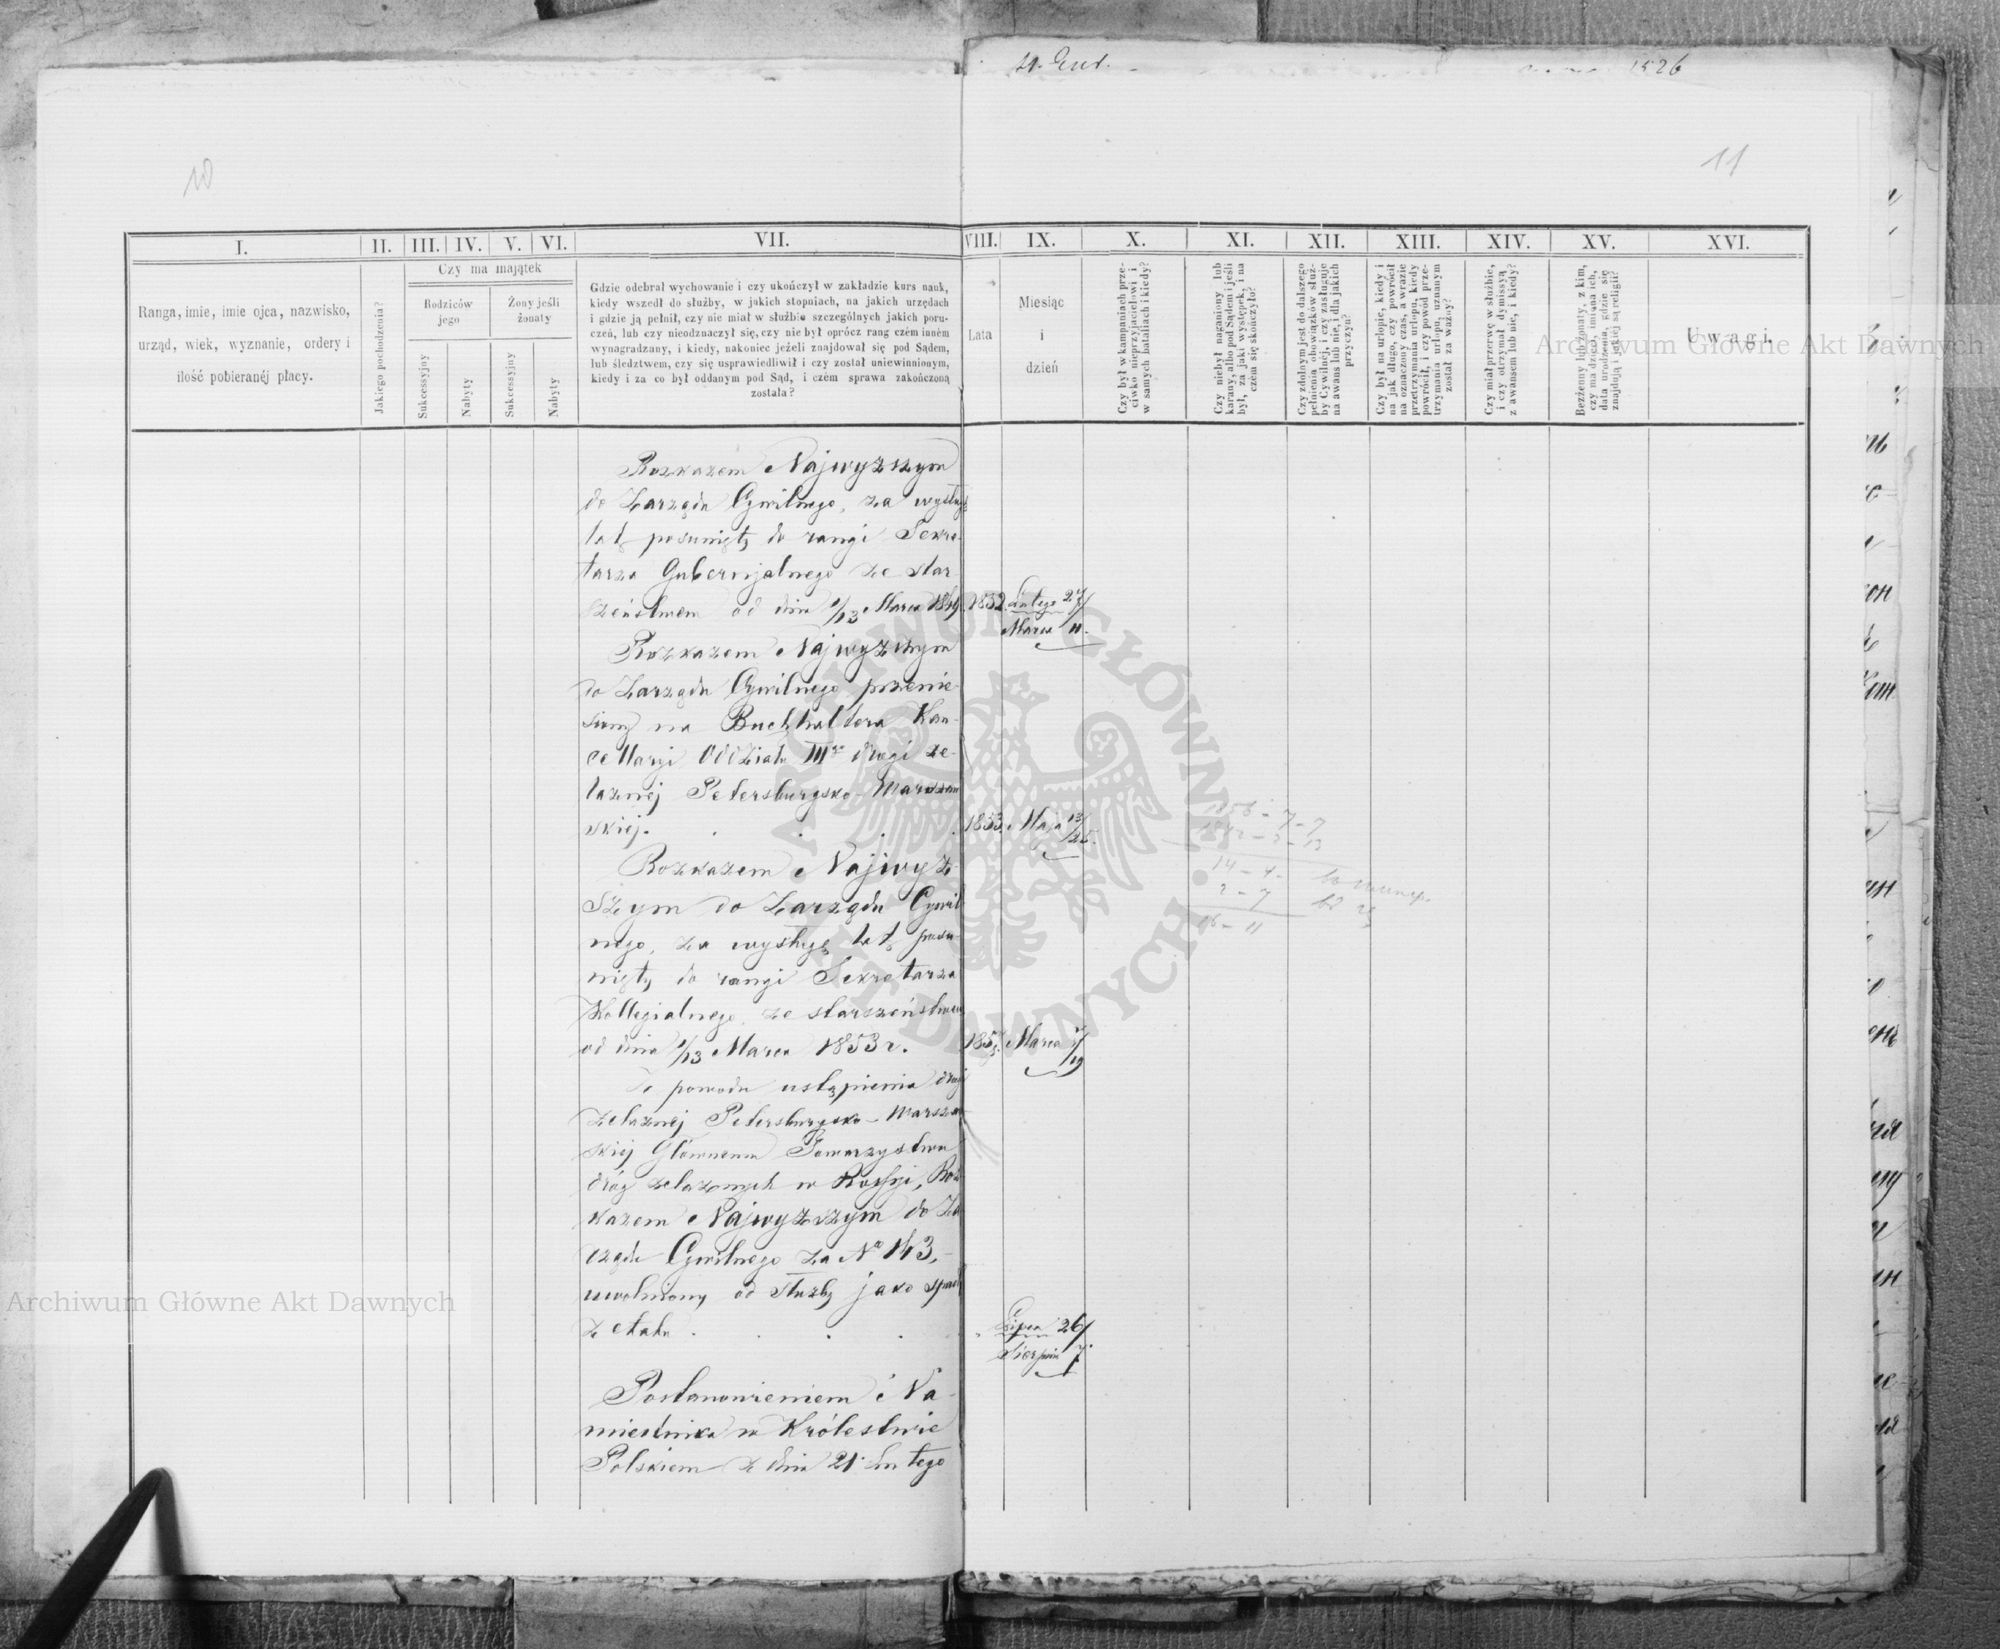 1526
10
11
I. II. III. IV. V. VI. VII. VIII. IX. X. XI. XII. XIII. XIV. XV. XVI.
Ranga, imie, imie ojca, nazwisko,
urząd, wiek, wyznanie, ordery i
ilość pobieranéj płacy.
Jakiego pochodzenia?
Czy ma majątek
Rodziców
jego
Żony jeśli
żonaty
Sukcessyjny
Nabyty
Sukcessyjny
Nabyty
Gdzie odebrał wychowanie i czy ukończył w zakładzie kurs nauk,
kiedy wszedł do służby, w jakich stopniach, na jakich urzędach
i gdzie ją pełnił, czy nie miał w służbie szczególnych jakich poru-
czeń, lub czy nieodznaczył się, czy nie był oprócz rang czém inném
wynagradzany, i kiedy, nakoniec jeżeli znajdował się pod Sądem,
lub śledztwem, czy się usprawiedliwił i czy został uniewinnionym,
kiedy i za co był oddanym pod Sąd, i czém sprawa zakończoną
została?
Lata
Miesiąc
i
dzień
Czy był w kampaniach prze-
ciwko nieprzyjacielowi i
w samych bataliach i kiedy?
Czy niebył naganiony lub
karany, albo pod Sądem i jeśli
był, za jaki występek, i na
czém się skończyło?
Czy zdolnym jest do dalszego
pełnienia obowiązków służ-
by Cywilnéj, i czy zasługuje
na awans lub nie, i dla jakich
przyczyn?
Czy był na urlopie, kiedy i
na jak długo, czy powrócił
na oznaczony czas, a w razie
przetrzymania urlopu, kiedy
powrócił, i czy powód prze-
trzymania urlopu, uznanym
został za ważny?
Czy miał przerwę w służbie,
i czy otrzymał dymissyą
z awansem lub nie, i kiedy?
Bezżenny lub żonaty, z kim,
czy ma dzieci, imiona ich,
data urodzenia, gdzie się
znajdują i jakiéj są religii?
Uwagi.
Rozkazem Najwyższym
do Zarządu Cywilnego, za wysługę
lat posunięty do rangi Sekre-
tarza Gubernjalnego ze star-
szeństwem od dnia 1/13 Marca 1849. 1852. Lutego 27/
Marca 11.
Rozkazem Najwyższym
do Zarządu Cywilnego przenie-
siony na Buchhaltera Kan-
cellaryi Oddziału III go drogi że-
laznej Petersbursko-Warszaw
skiej. 1853. Maja 13/25.
Rozkazem Najwyż-
szym do Zarządu Cywil
nego, za wysługę lat posu-
nięty do rangi Sekretarza
Kollegialnego, ze starszeństwem
od dnia 1/13 Marca 1853 r. Marca 7/19
Z powodu ustąpienia drogi
żelaznej Petersbursko-Warszaw
skiej Głównemu Towarzystwu
dróg żelaznych w Rossyi, Roz-
kazem Najwyższym do Za
rządu Cywilnego za No 143,
uwolniony od służby jako spadł
z etatu. Lipca 26/
Sierpnia 7.
Postanowieniem Na-
miestnika w Królestwie
Polskiem z dnia 21 Lutego
1856 - 7 - 7
14 - 4 -
2 - 7
16 - 11
ARCHIWUM GŁÓWNE AKT DAWNYCH
Archiwum Główne Akt Dawnych
Archiwum Główne Akt Dawnych